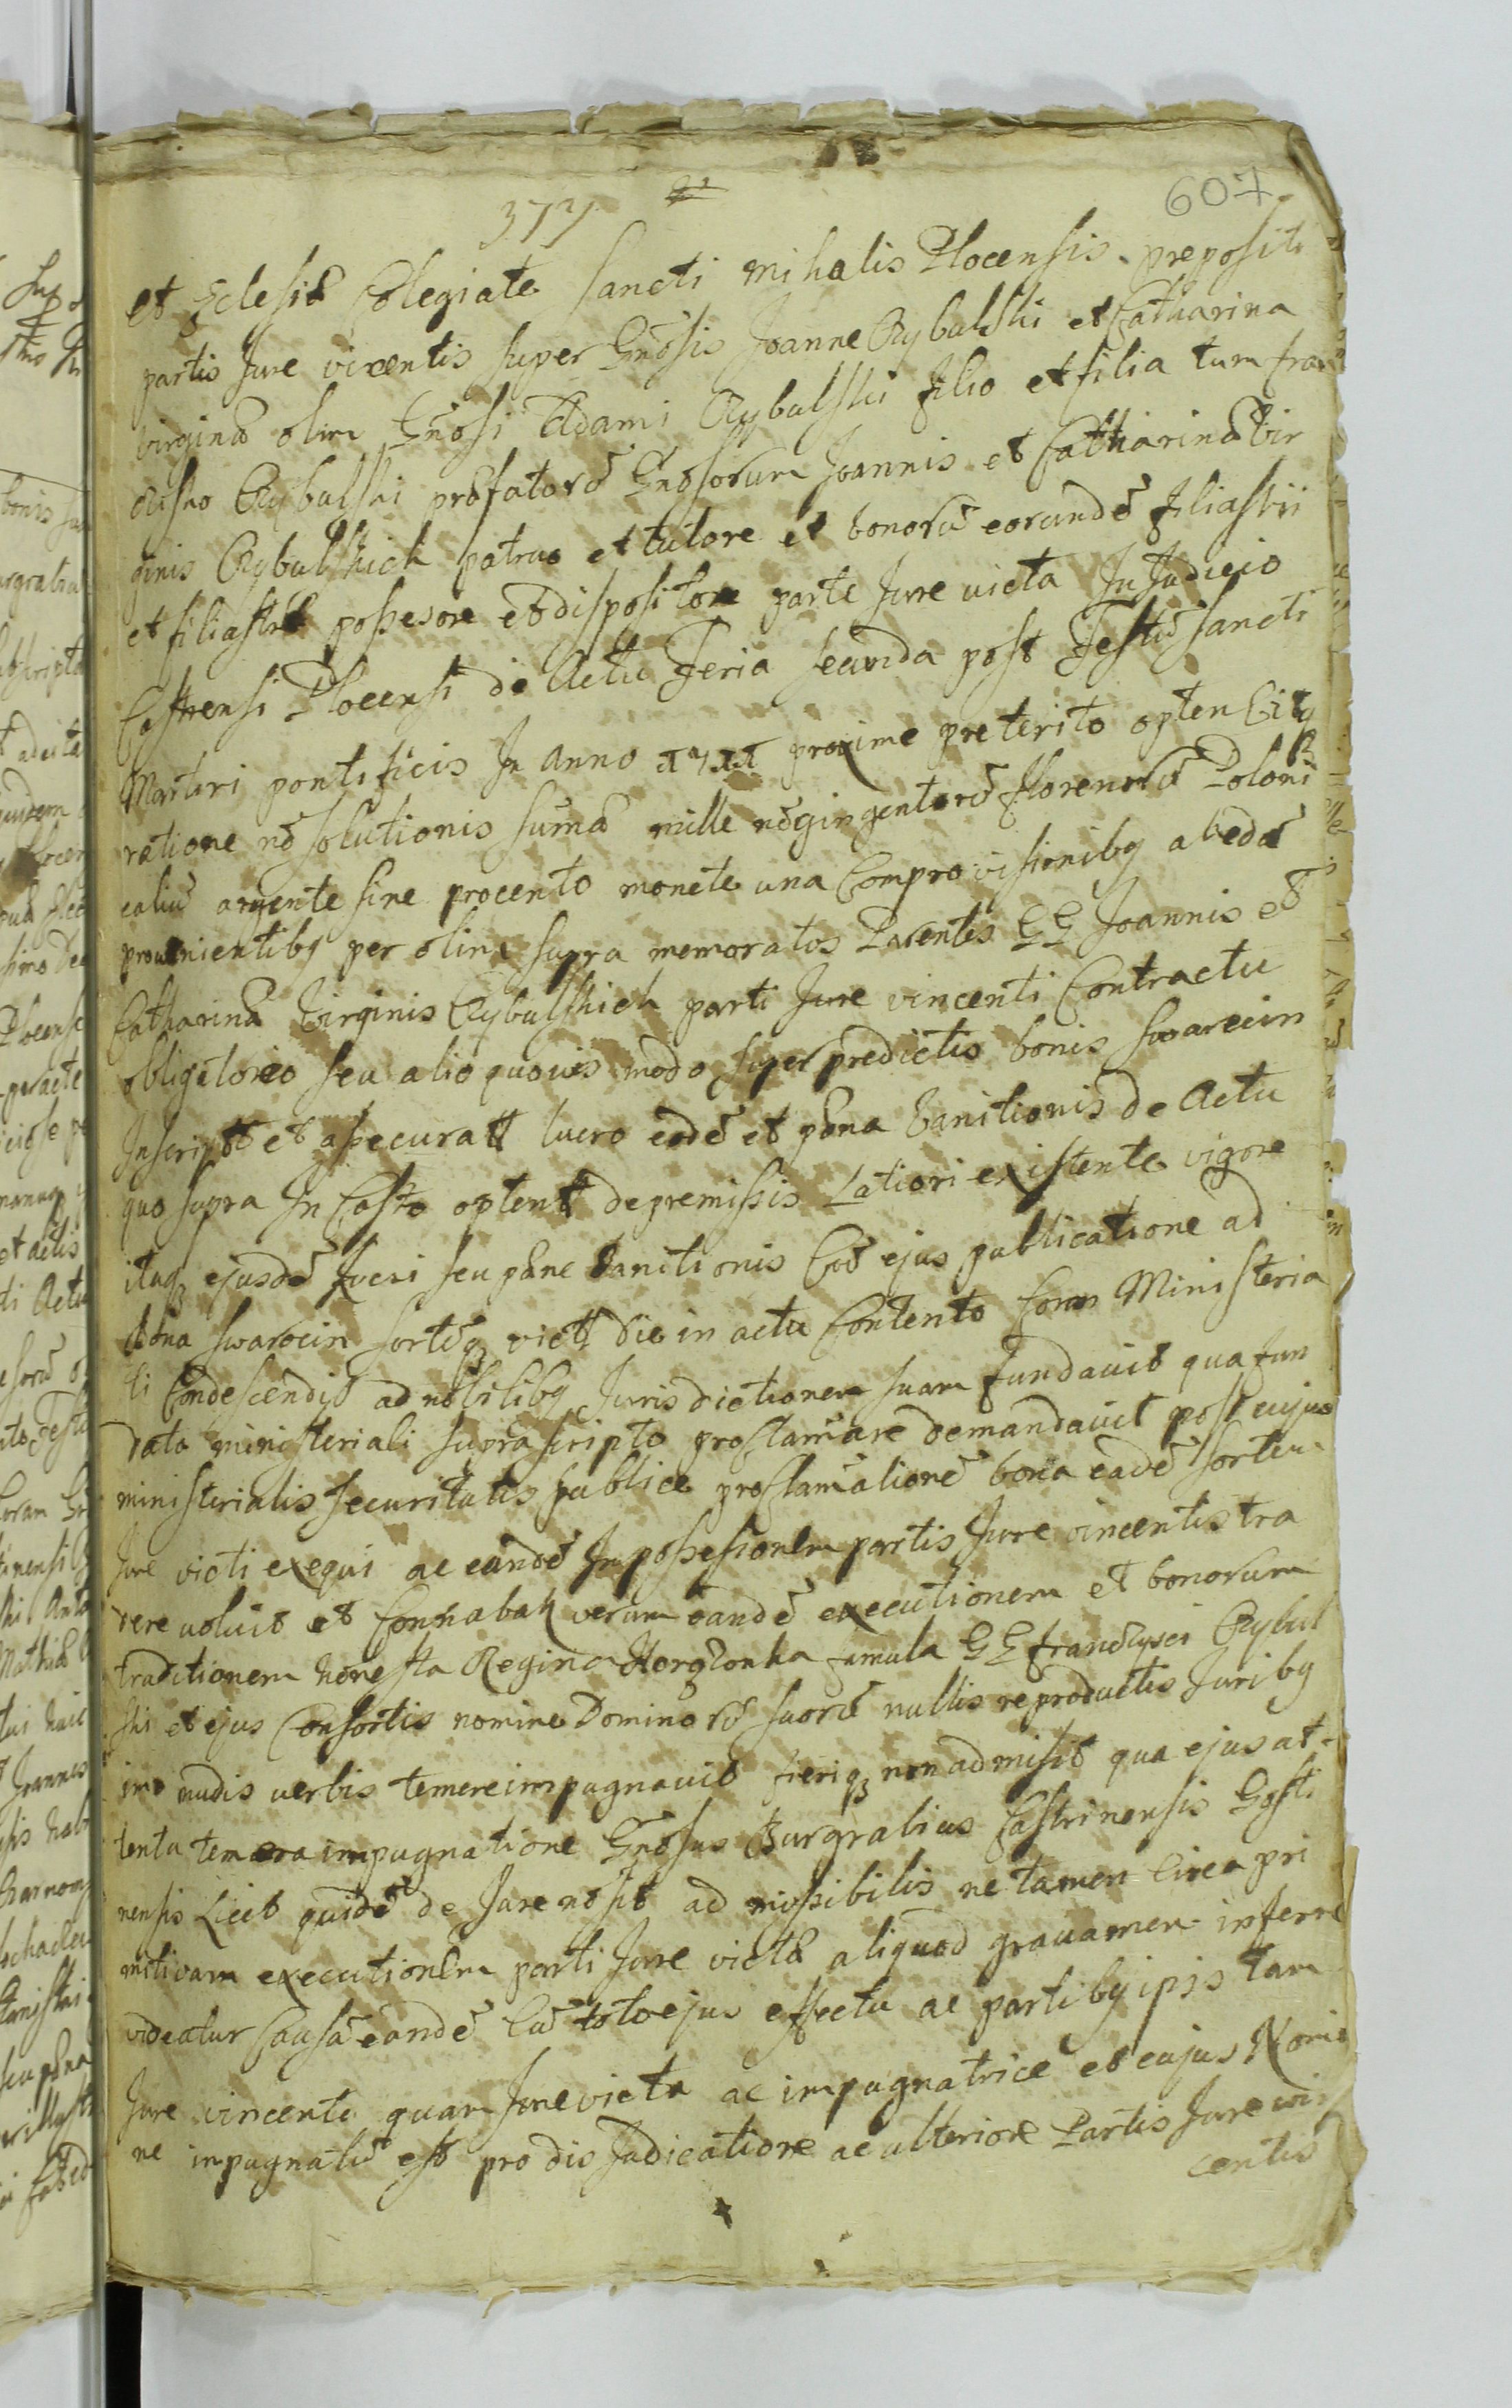 377
607
et Eclesiæ Colegiate Sancti Mihalis Plocensis prepositi
partis Jure vicentis super Gnosis Joanne Rybalski et Catharina
virginæ olim Gnosi Adami Rybalski filio et filia tum fran
cisko Rybalski præfatorū Gnosorum Joannis et Catharinæ Vir
ginis Rybalskich patruo et tutore et bonorū eorundē filiastrii
et filiastræ possesore et dispositore parte Jure victa In Judicio
Castrensi Plocensi de Actu Feria secunda post Festū Sancti
Martini pontificis In Anno proxime preterito opten
ratione nō solutionis sumæ mille nōgingentorū florenorū Poloni
caliū argente sine procento monete una Comprovisionibq ab eadē
prouenientibq per olim supra memoratos Parentes GG Joannis et
Catharinæ Virginis Rybalskich parti Jure vincenti Contractu
obligatorio seu alio quovis modo super predictis bonis Swarocin
Inscript et assecurat lucro eodē et pæna banitionis de Actu
quo supra In Castro optent de premissis Latiori existente vigore
itaq ejusdē lucri seu pæne banitionis Cōd ejus publicatione ad
bona Swarocin sortēq vict die in actu Contento Coram Ministeria
li Condescendit ad nobilibq Jurisdictionem suam fundavit qua fun
data ministeriali suprascripto proclamare demandavit post cujus
ministerialis securitatis publice proclamationē bona eadē sortem
Jure victi exequi ac eandē In possesionem partis Jure vincentis tra
dere voluit et Connabat verum eandē executionem et bonorum
traditionem honesta Regina famula GG francysci Rybal
ski et ejus Consortis nomine Dominorū suorū nullis reproductis Juribq
imo nudis verbis temere impugnavit fieriq non admisit qua ejus at
tenta temera impugnatione Gnosus Burgrabius Castrinensis Gosti
nensis Licet quidē de Jure nō sit admissibilis ne tamen Circa pri
mitivam executionem parti Jure victæ aliquod gravamen inferre
videatur Causā eandē Cū toto ejus effectu ac partibq ipsis tam
Jure vincente quam Jure victa ac impugnatrice et cujus Nomi
ne impugnatū est pro disjudicatione ac ulteriore Partis Jure vin
centis